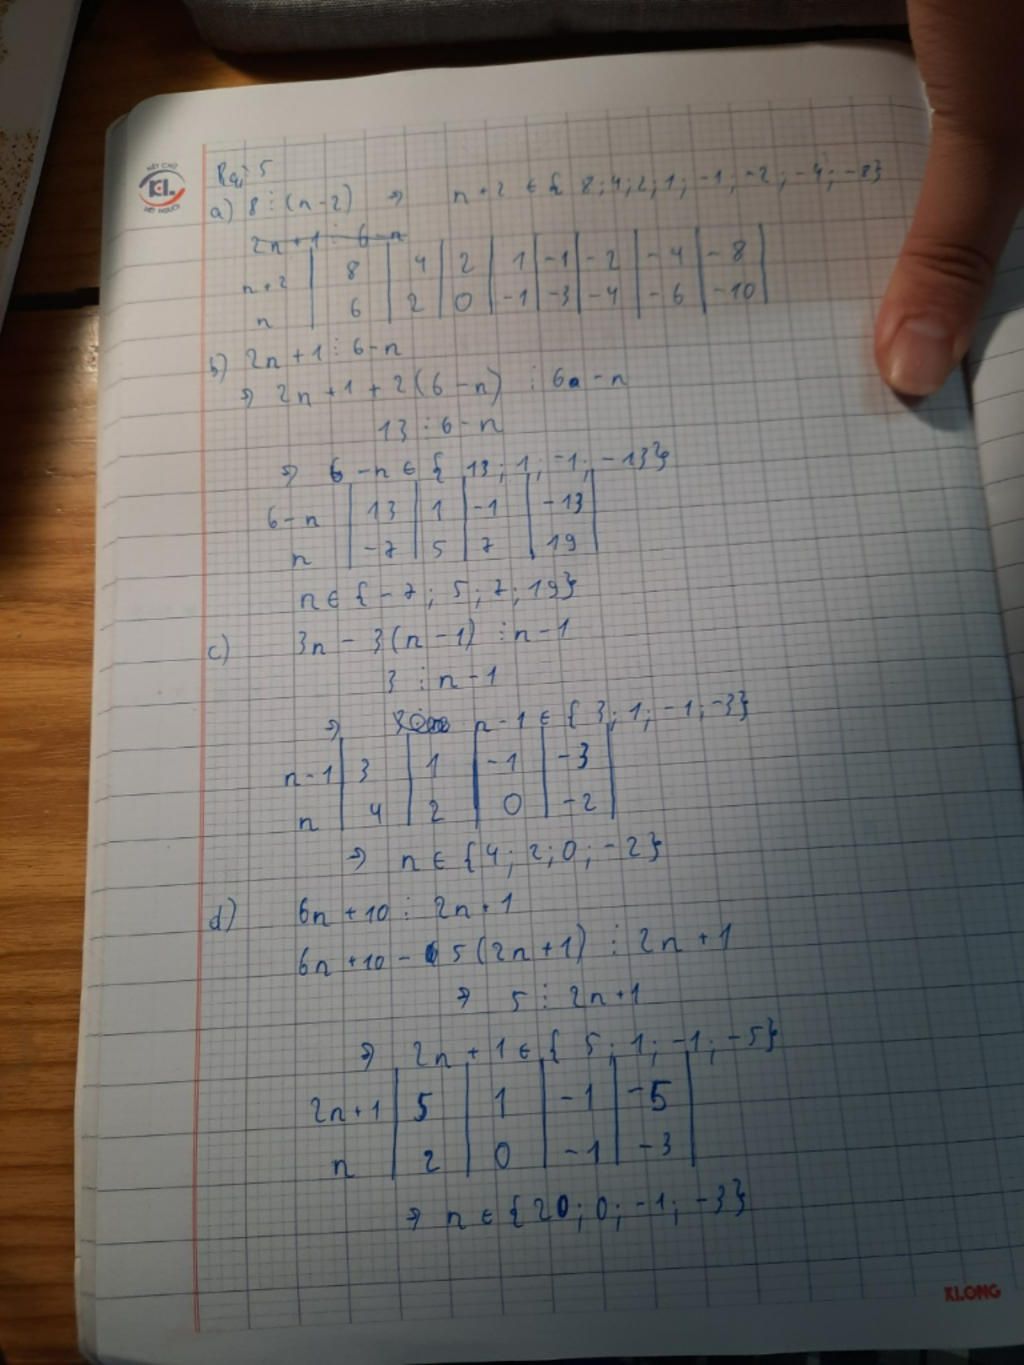 Bài 5
a) 8 ⋮ (n-2) ⇒ n+2 ∈ { 8; 4; 2; 1; -1; -2; -4; -8}
2n+1 ⋮ 6-n
n+2 | 8 | 4 | 2 | 1 | -1 | -2 | -4 | -8 |
n | 6 | 2 | 0 | -1 | -3 | -4 | -6 | -10 |
b) 2n+1 ⋮ 6-n
⇒ 2n+1+2(6-n) ⋮ 6-n
13 ⋮ 6-n
⇒ 6-n ∈ { 13; 1; -1; -13}
6-n | 13 | 1 | -1 | -13 |
n | -7 | 5 | 7 | 19 |
n ∈ {-7; 5; 7; 19}
c) 3n - 3(n-1) ⋮ n-1
3 ⋮ n-1
⇒ n-1 ∈ { 3; 1; -1; -3}
n-1 | 3 | 1 | -1 | -3 |
n | 4 | 2 | 0 | -2 |
⇒ n ∈ {4; 2; 0; -2}
d) 6n+10 ⋮ 2n+1
6n+10 - 5(2n+1) ⋮ 2n+1
⇒ 5 ⋮ 2n+1
⇒ 2n+1 ∈ { 5; 1; -1; -5}
2n+1 | 5 | 1 | -1 | -5 |
n | 2 | 0 | -1 | -3 |
⇒ n ∈ {20; 0; -1; -3}
KLONG